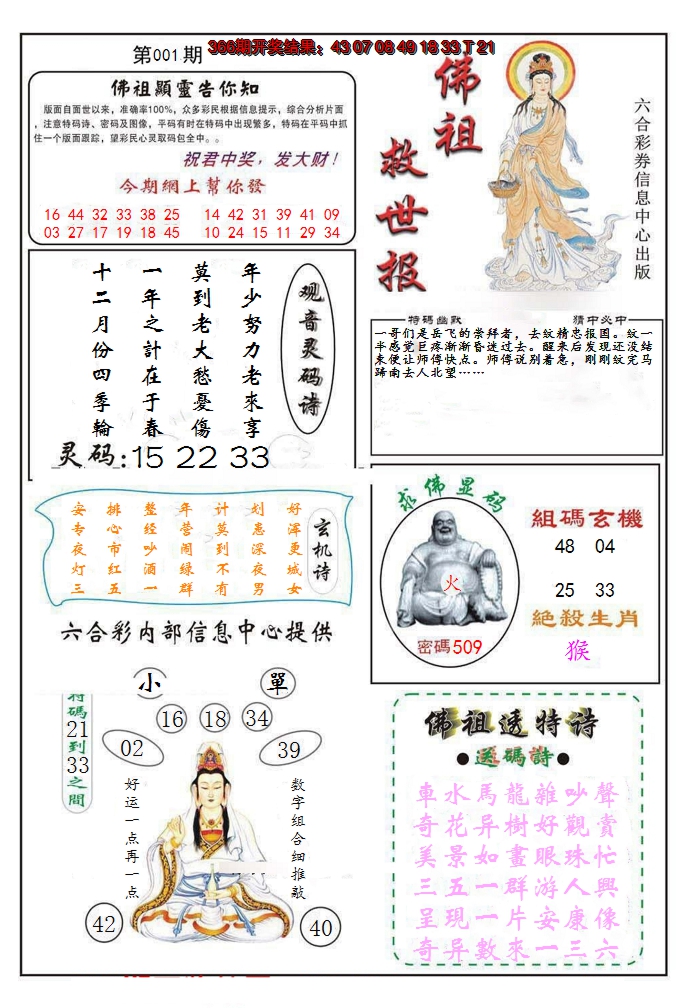 第001期
366期开奖结果：43 07 08 49 18 33 T 21
佛祖顯靈告你知
版面自面世以来，准确率100%，众多彩民根据信息提示，综合分析片面
，注意特码诗、密码及图像，平码有时在特码中出现繁多，特码在平码中抓
住一个版面跟踪，望彩民心灵取码包全中。。
祝君中奖，发大财！
今期網上幫你發
16 44 32 33 38 25 14 42 31 39 41 09
03 27 17 19 18 45 10 24 15 11 29 34
佛祖
救世报
六合彩券信息中心出版
观音灵码诗
年少努力老來享
莫到老大愁憂傷
一年之計在于春
十二月份四季輪
灵码:15 22 33
特碼幽默 猜中必中
一哥们是岳飞的崇拜者，去蚊精忠报国。蚊一
半感觉巨疼渐渐昏迷过去。醒来后发现还没结
束便让师傅快点。师傅说别着急，刚刚蚊完马
蹄南去人北望……
玄机诗
安排整年计划好
专心经营莫惠浑
夜市吵闹到深更
灯红酒绿不夜城
三五一群有男女
六合彩内部信息中心提供
求佛显码
火
密碼509
組碼玄機
48 04
25 33
絕殺生肖
猴
小 單
特碼21到33之間
16 18 34
02 39
好运一点再一点
数字组合细推敲
42 40
佛祖透特诗
●送碼詩●
車水馬龍雜吵聲
奇花异樹好觀賞
美景如畫眼珠忙
三五一群游人興
呈現一片安康像
奇异數來一三六